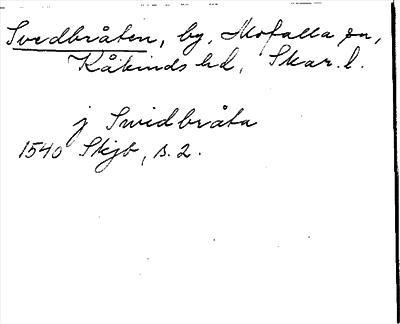 Svedbråten, by, Mofalla sn,
Kåkinds hd, Skar. l.
j Swidbråta
1540 Skjb, s. 2.